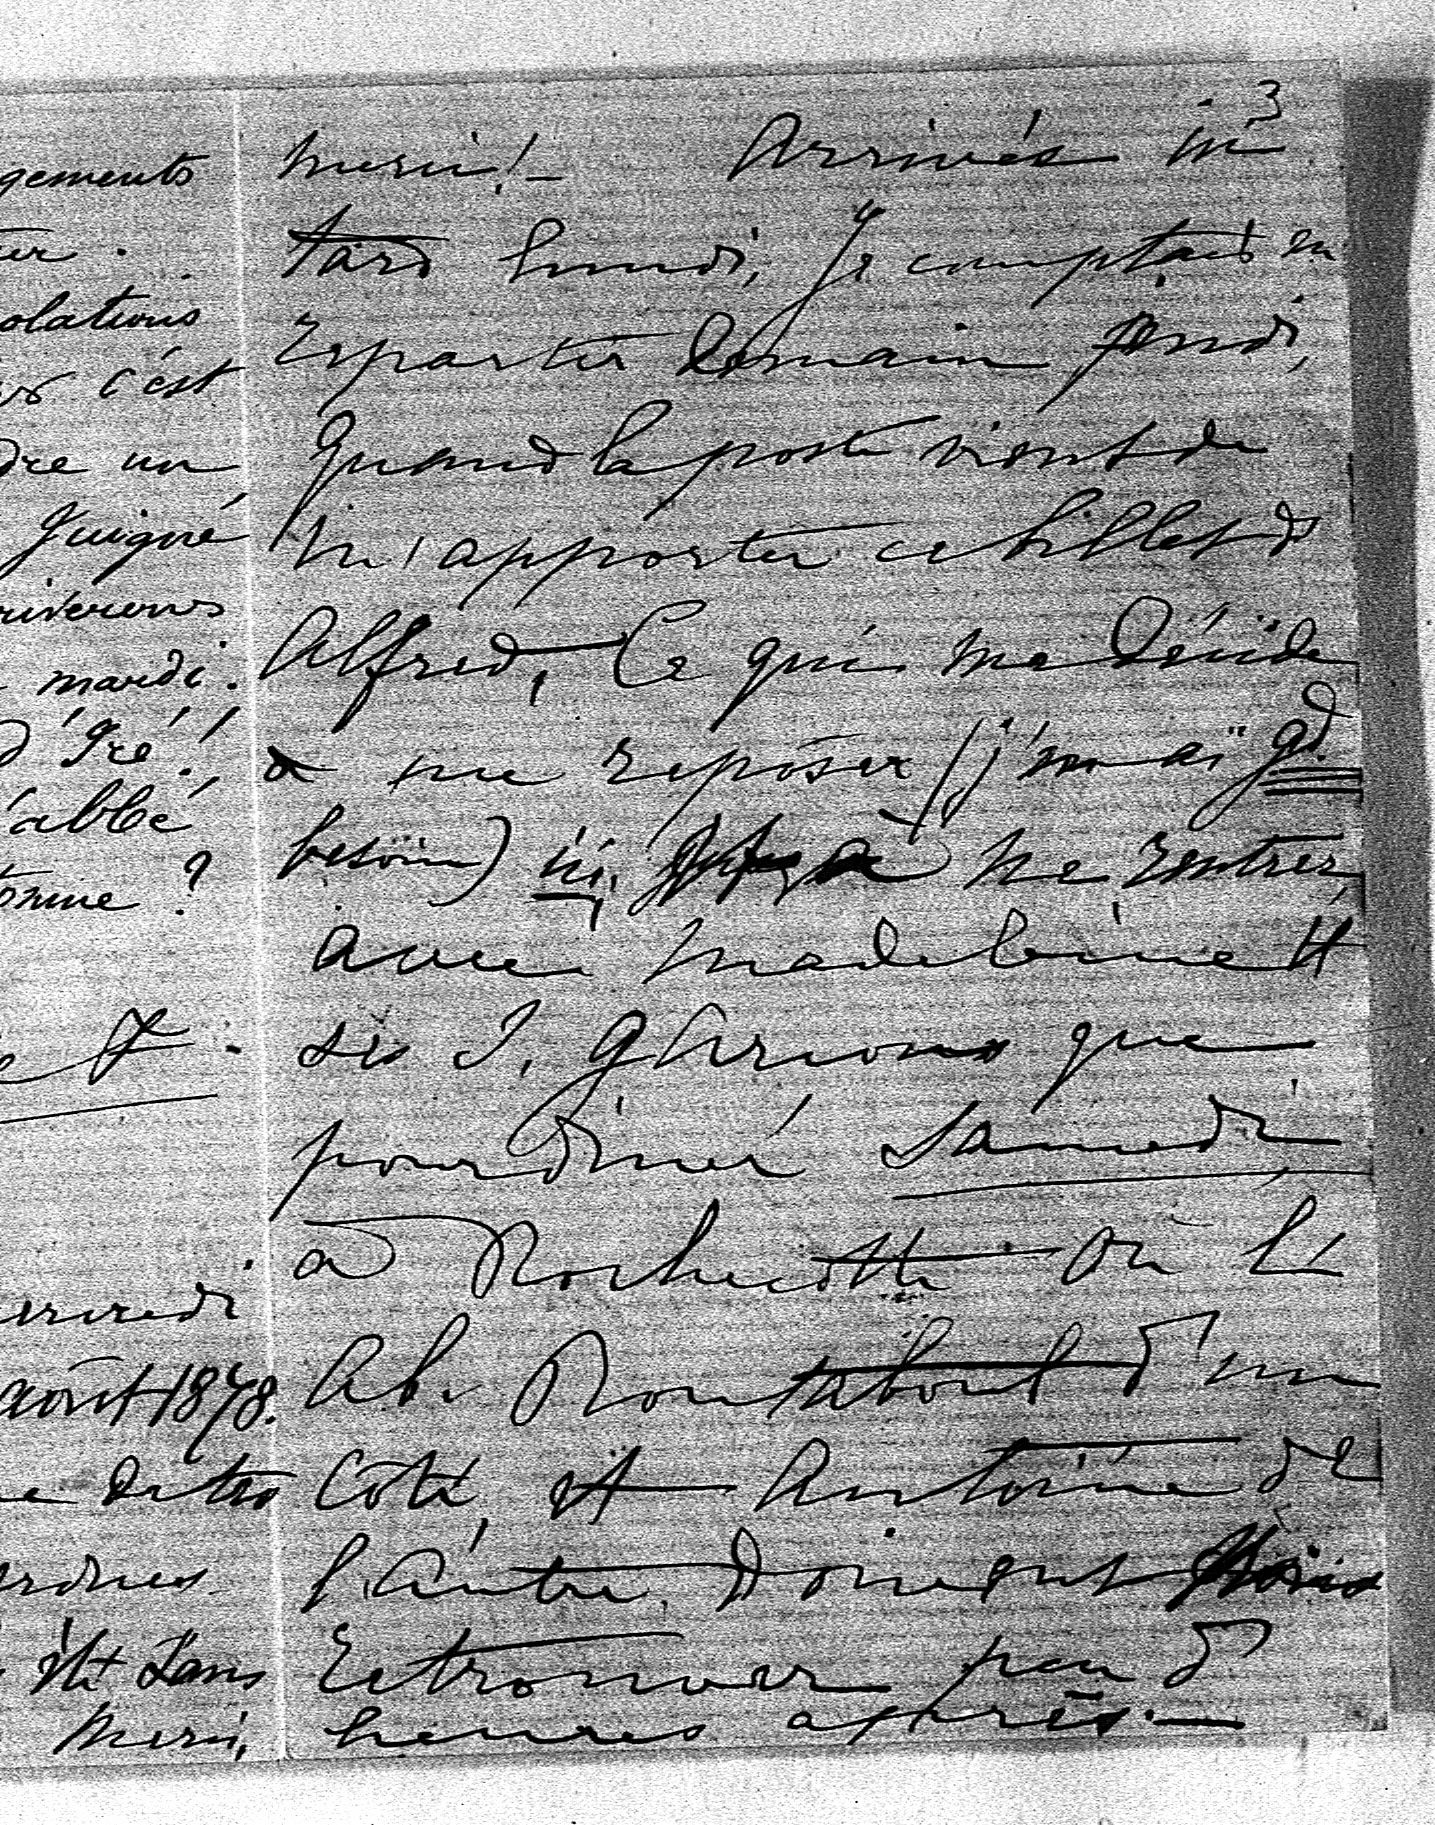 gements
olations
c'est
dre un
Guigné
mardi.
d'gré!
l'abbé
?
août 1878.
Sans
merci,
3
merci! — Arrivés ici
tard lundi, je comptais en
repartir demain jeudi,
quand la poste vient de
m'apporter ce billet d'
Alfred, ce qui me décide
à me reposer (j'en ai gd.
besoin) ici, à ne rentrer
avec Madeleine et
ses que
pour dîner samedi
à Rochecotte où l'
Ab. Rontaboul d'un
côté, et Antoine de
l'autre doivent nous
retrouver peu d'
heures après. —